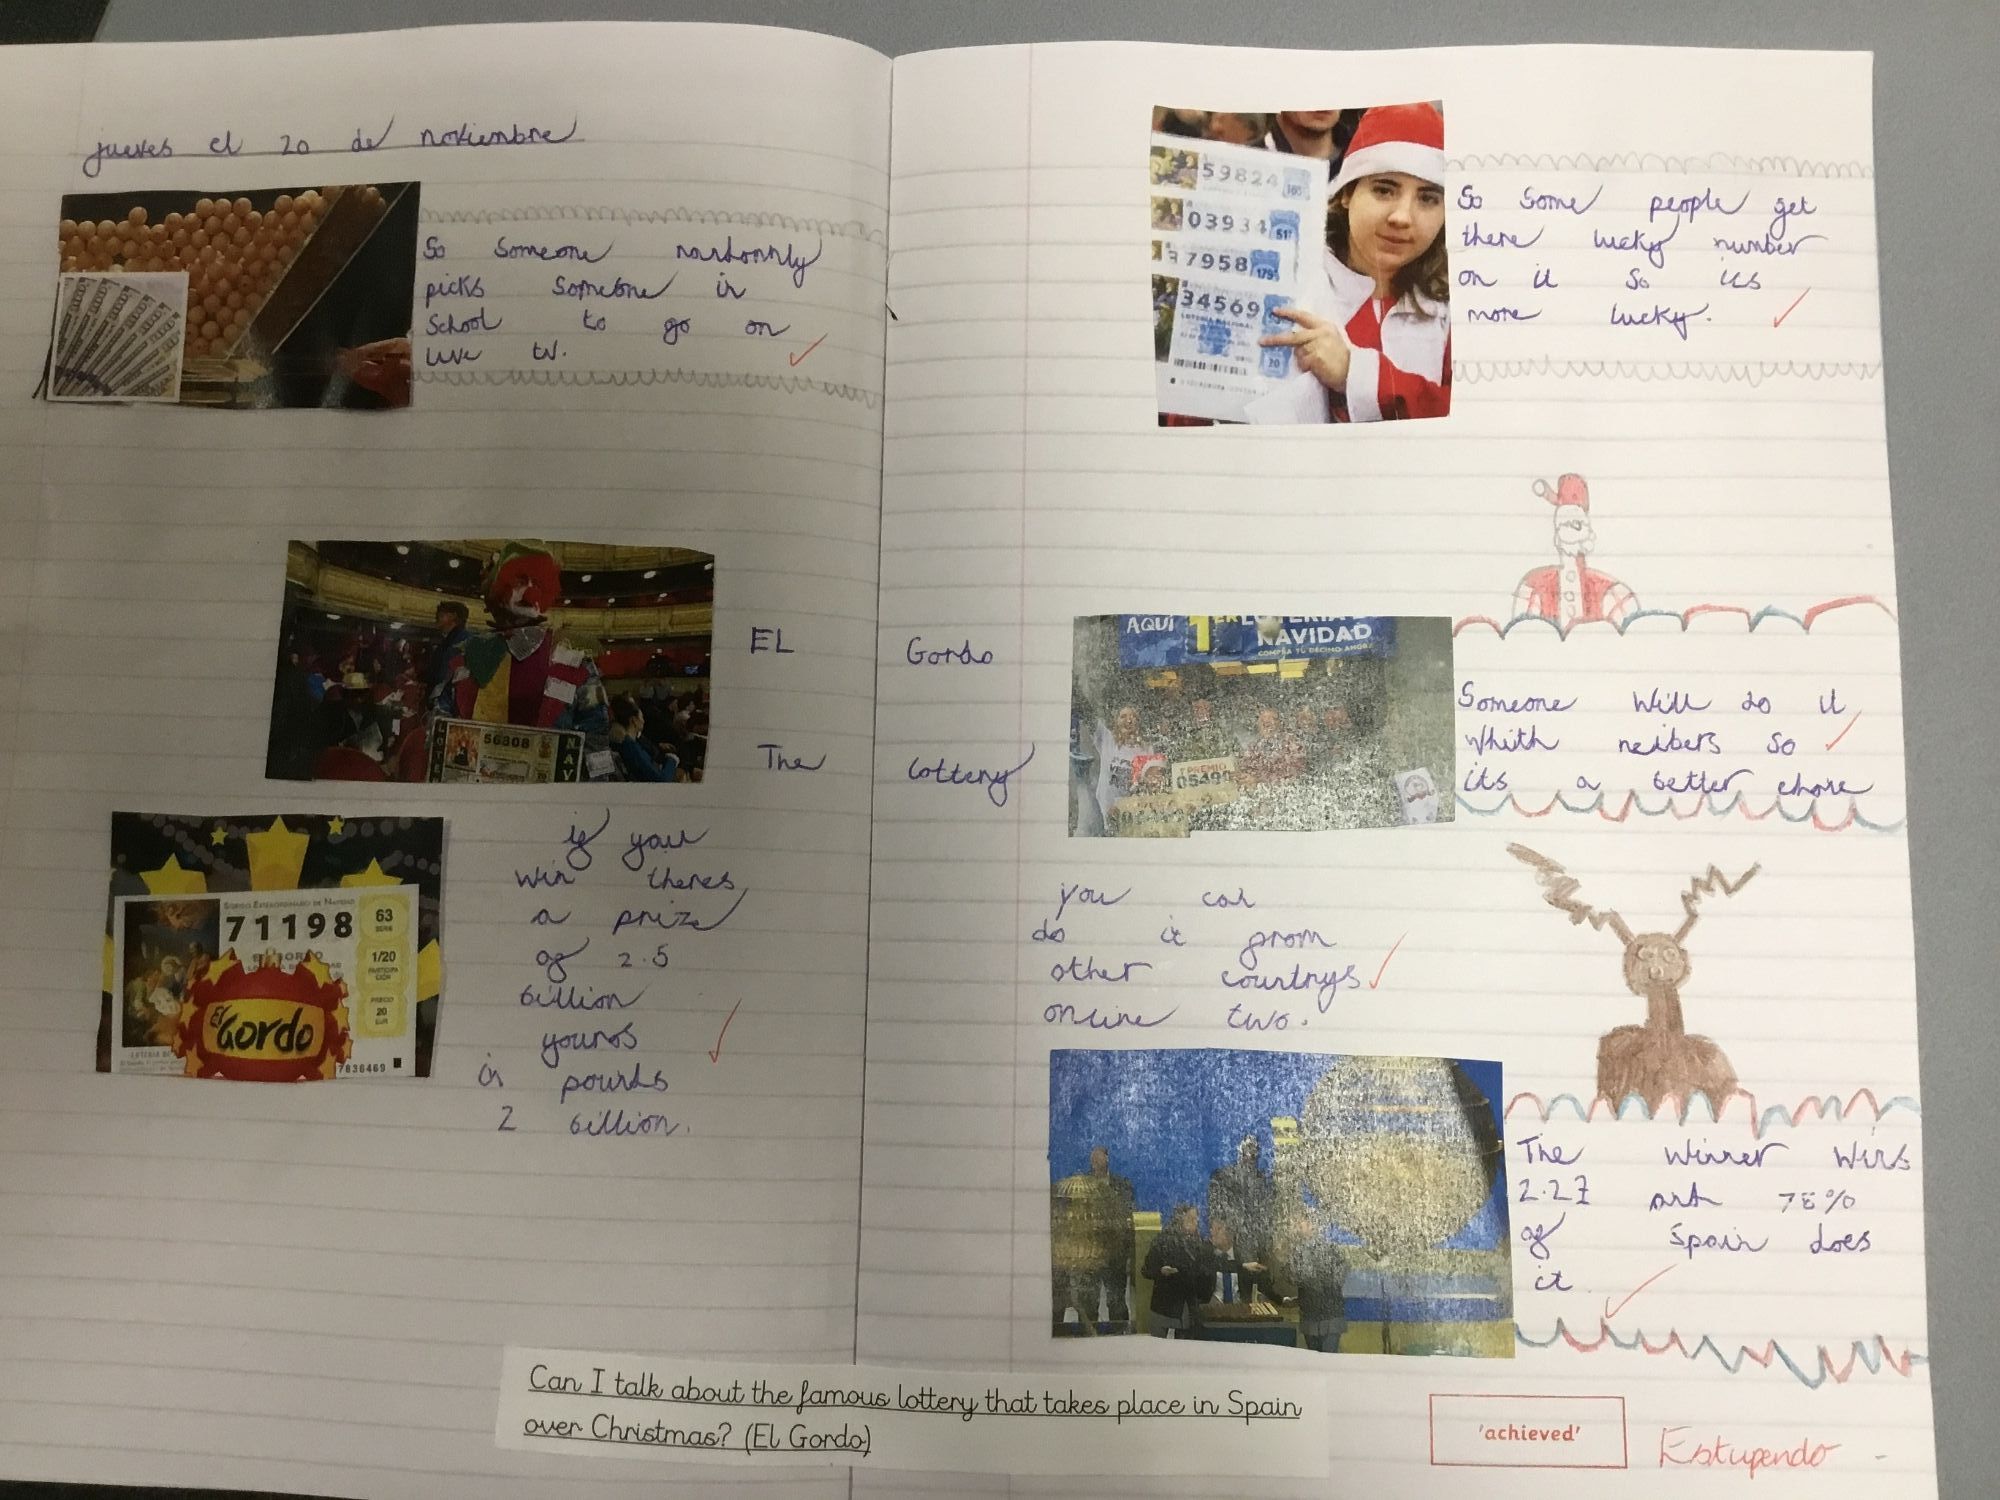 jueves el 20 de noviembre
So someone randomly
picks someone in
school to go on
live tv.
56308
EL Gordo
The lottery
SORTEO EXTRAORDINARIO DE NAVIDAD
71198
63
SERIE
1/20
PARTICIPA
CIÓN
PRECIO
20
EUR
El Gordo
7836469
if you
win theres
a prize
of 2.5
billion
youros
in pounds
2 billion.
59824
03934
7958
34569
LOTERIA NACIONAL
20
So some people get
there lucky number
on it so its
more lucky.
AQUÍ 1ER LOTERIA
NAVIDAD
COMPRA TU DÉCIMO AHORA
1ER PREMIO
05490
Someone will do it
whith neibers so
its a better
you can
do it from
other countrys
online two.
The winner wins
2.27 and
of Spain does
it
Can I talk about the famous lottery that takes place in Spain
over Christmas? (El Gordo)
'achieved'
Estupendo